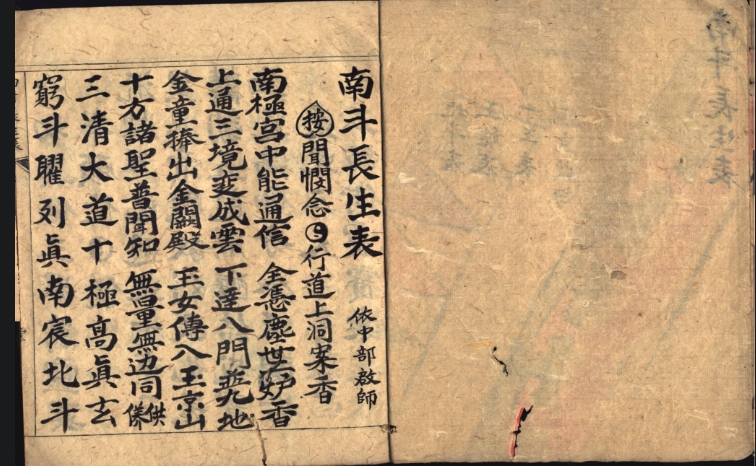 南斗長生表
南斗長生表 依中部啟師
按聞憫念 行道上洞案香
南極宮中能通信 全憑塵世炉香
上通三境変成雲 下達八門并九地
金童捧出金闕殿 玉女傳入玉京山
十方諸聖普聞知 無量無边同供養
三清大道十極高眞玄
窮斗曜列眞南宸北斗